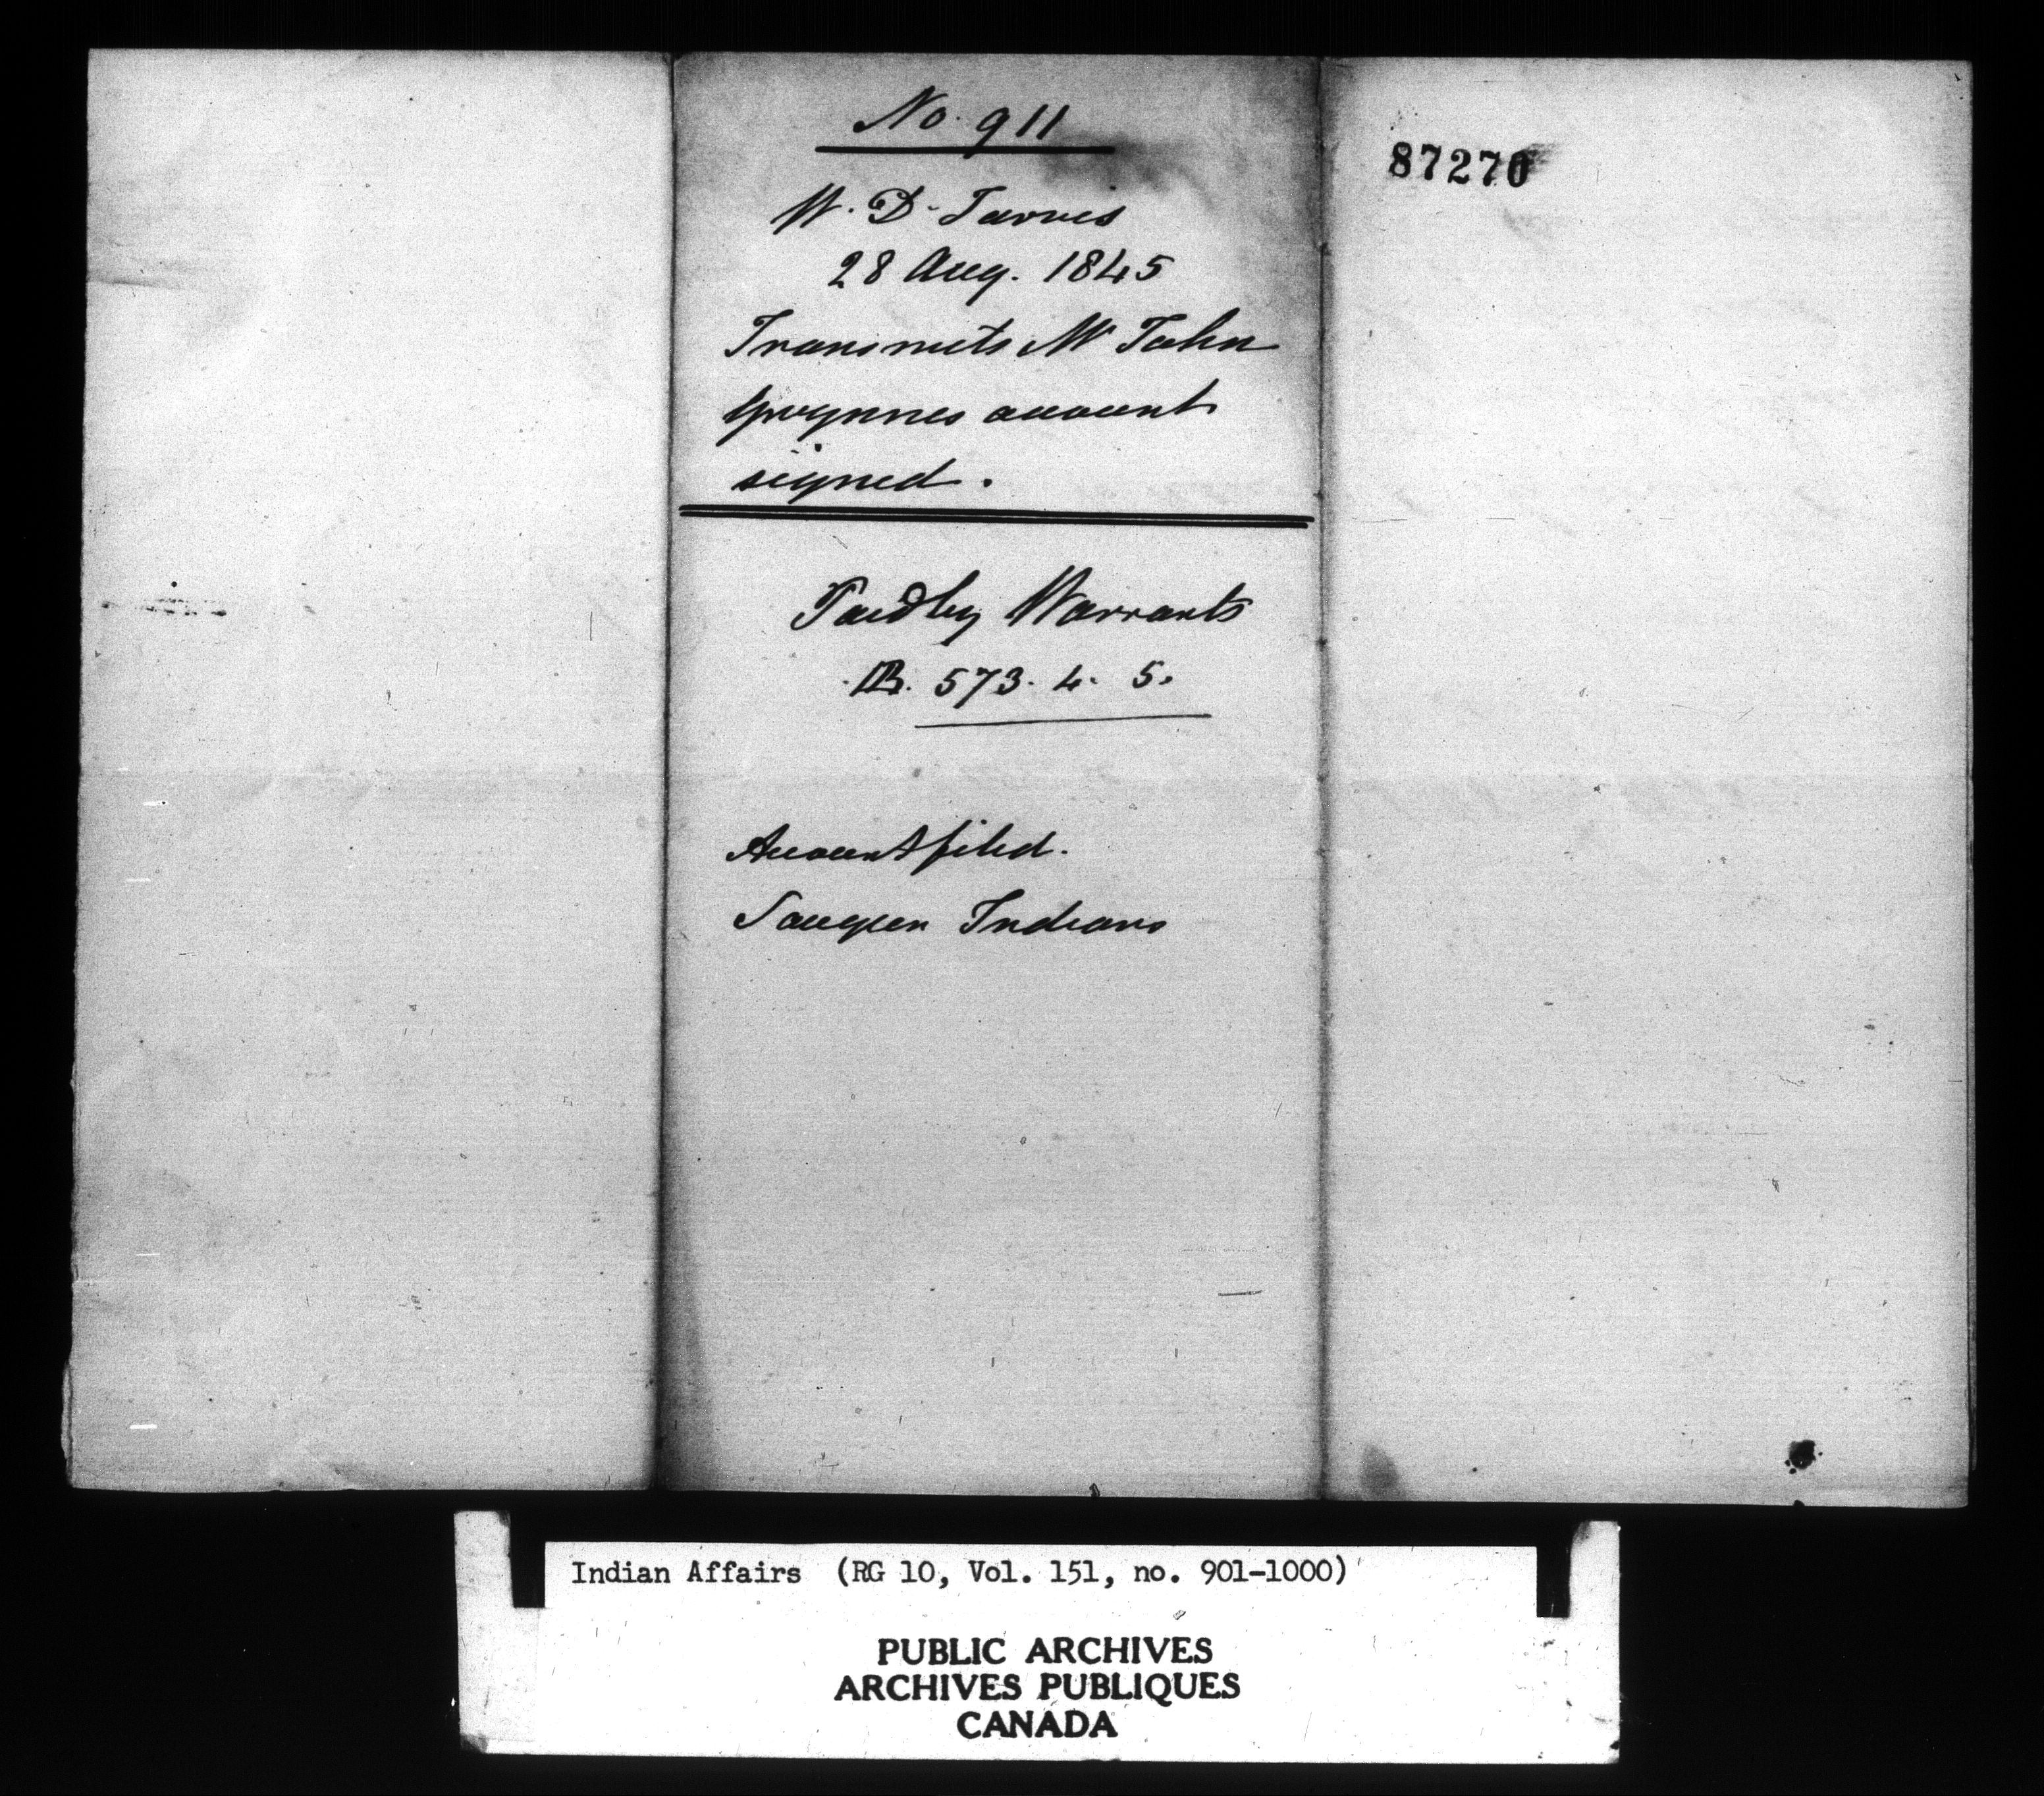 No. 911
W. D. Jarvis
28 Aug. 1845
Transmits Mr John
Gwynnes account
signed.
Paid by Warrants
573. 4. 5.
Account filed.
Saugeen Indians
87270
Indian Affairs (RG 10, Vol. 151, no. 901-1000)
PUBLIC ARCHIVES
ARCHIVES PUBLIQUES
CANADA